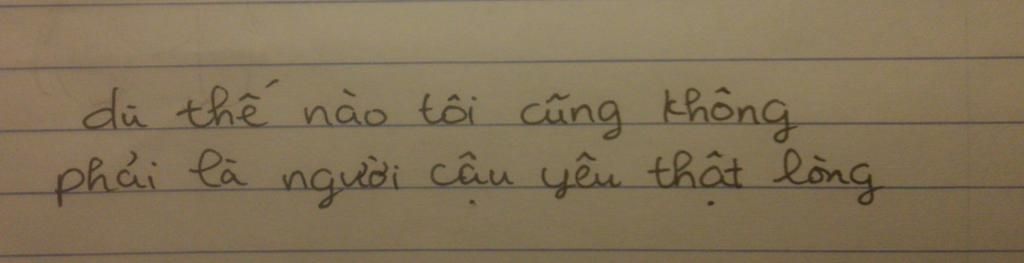 dù thế nào tôi cũng không
phải là người cậu yêu thật lòng